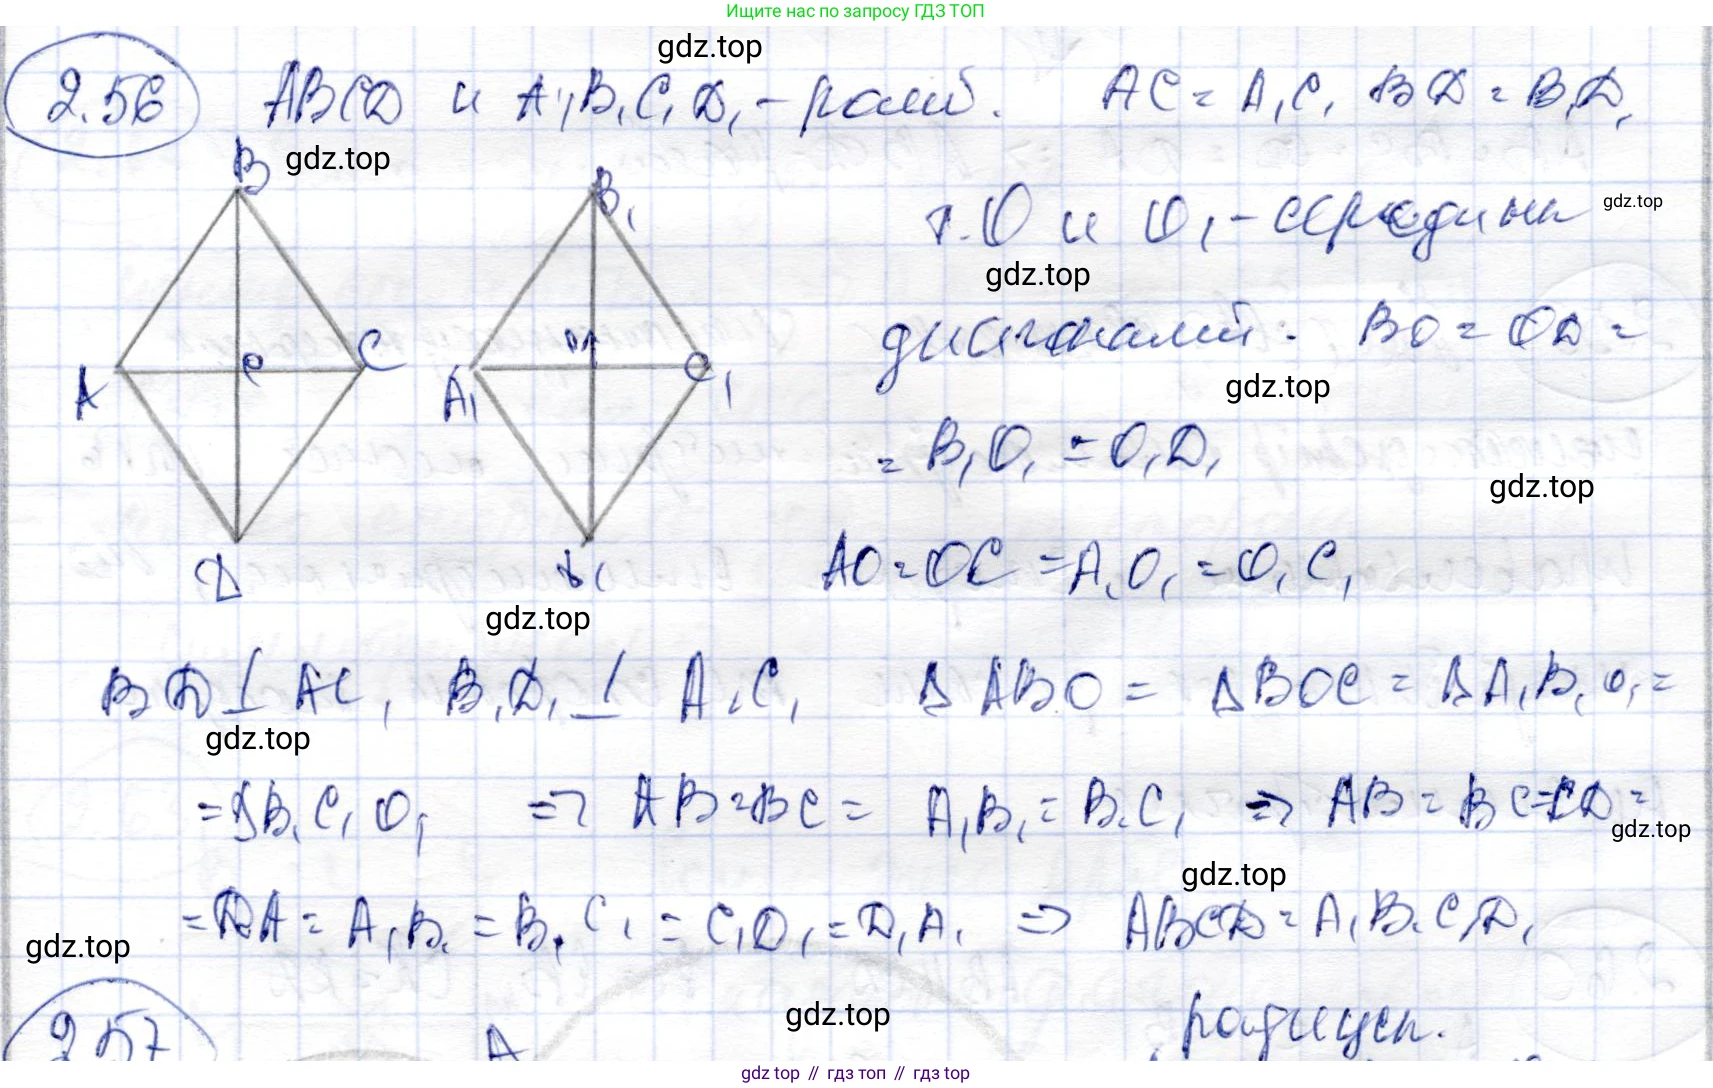 Ищите нас по запросу ГДЗ ТОП
gdz.top
2.56 ABCD и A₁B₁C₁D₁ - ромб. AC = A₁C₁ BD = B₁D₁
gdz.top
B B₁
т. O и O₁ - середины gdz.top
gdz.top
диагоналей: BO = OD =
A O C A₁ O₁ C₁
gdz.top
= B₁O₁ = O₁D₁
gdz.top
AO = OC = A₁O₁ = O₁C₁
D
gdz.top
BD ⊥ AC, B₁D₁ ⊥ A₁C₁ Δ ABO = Δ BOC = Δ A₁B₁O₁ =
gdz.top
= ΔB₁C₁O₁ => AB = BC = A₁B₁ = B₁C₁ => AB = BC = CD =
gdz.top
gdz.top
= DA = A₁B₁ = B₁C₁ = C₁D₁ = D₁A₁ => ABCD = A₁B₁C₁D₁
gdz.top
gdz.top
2.57 A
gdz.top // гдз топ // гдз top